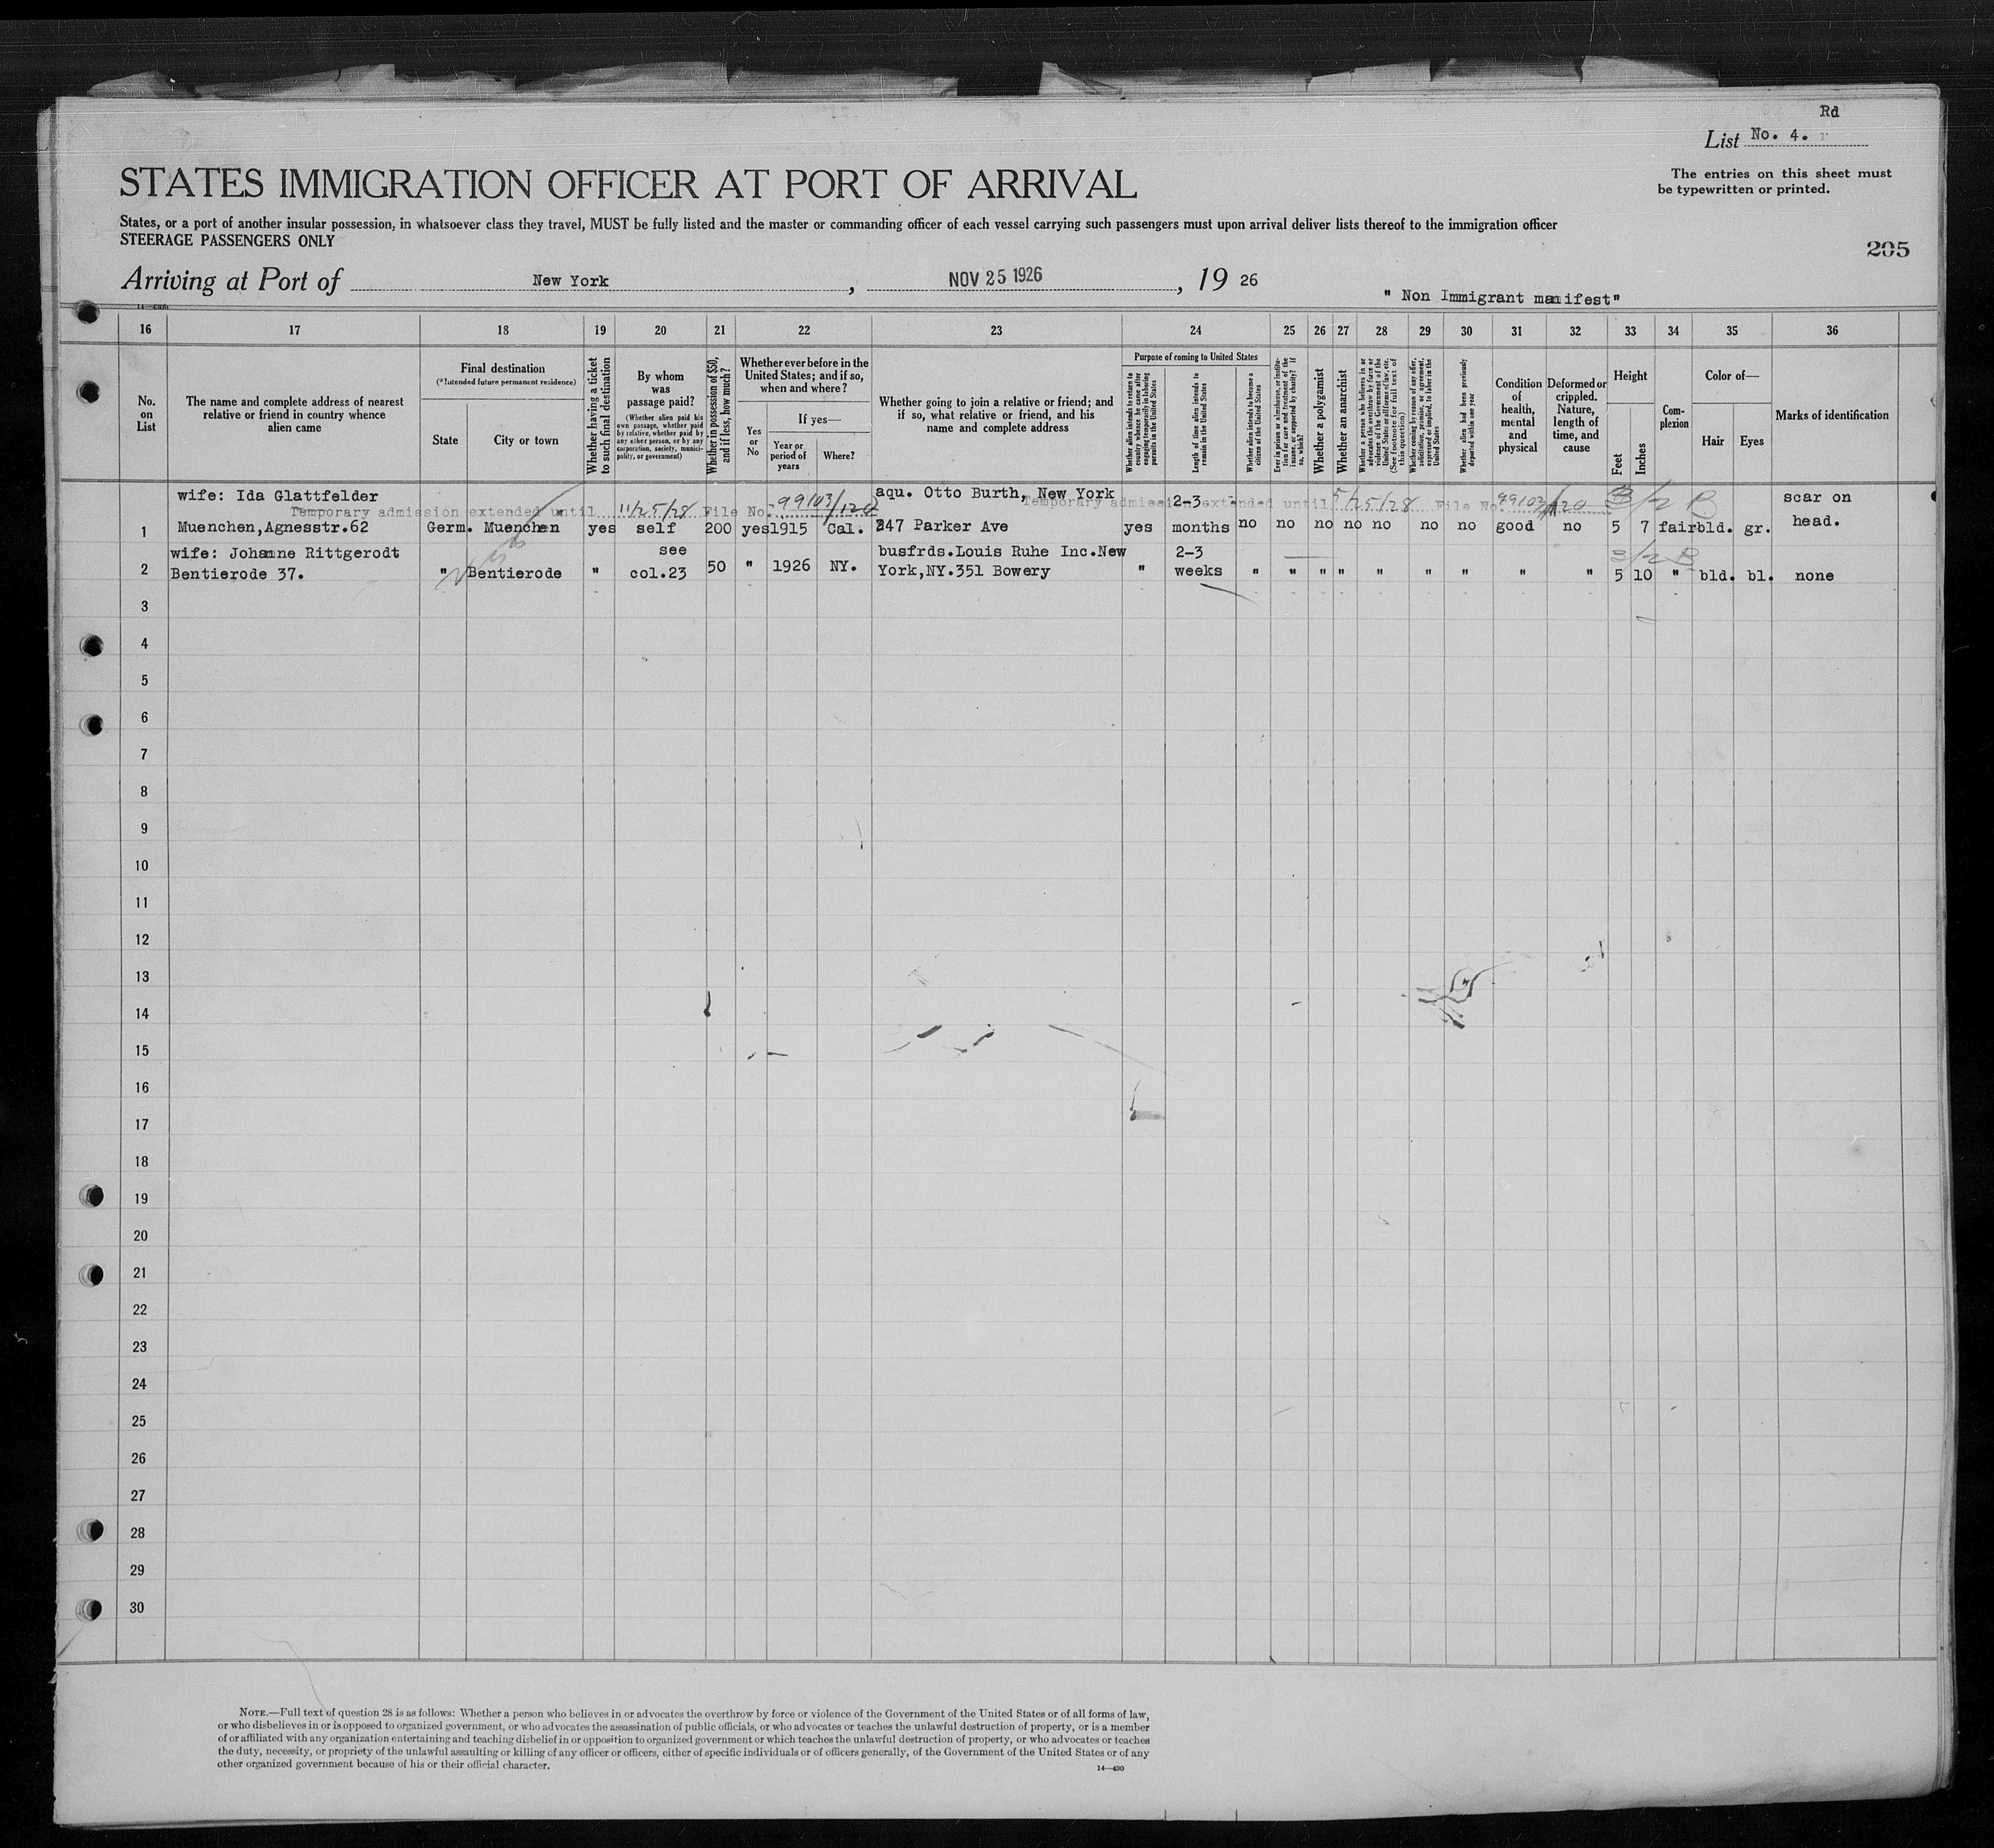 Rd
List No. 4.
The entries on this sheet must
be typewritten or printed.
STATES IMMIGRATION OFFICER AT PORT OF ARRIVAL
States, or a port of another insular possession, in whatsoever class they travel, MUST be fully listed and the master or commanding officer of each vessel carrying such passengers must upon arrival deliver lists thereof to the immigration officer
STEERAGE PASSENGERS ONLY
205
Arriving at Port of New York, NOV 25 1926, 19 26
" Non Immigrant manifest"
16 17 18 19 20 21 22 23 24 25 26 27 28 29 30 31 32 33 34 35 36
No.
on
List
The name and complete address of nearest
relative or friend in country whence
alien came
Final destination
(*Intended future permanent residence)
State
City or town
Whether having a ticket
to such final destination
By whom
was
passage paid?
(Whether alien paid his
own passage, whether paid
by relative, whether paid by
any other person, or by any
corporation, society, munici-
pality, or government)
Whether in possession of $50,
and if less, how much?
Whether ever before in the
United States; and if so,
when and where?
Yes
or
No
If yes—
Year or
period of
years
Where?
Whether going to join a relative or friend; and
if so, what relative or friend, and his
name and complete address
Purpose of coming to United States
Whether alien intends to return to
country whence he came after
engaging temporarily in laboring
pursuits in the United States
Length of time alien intends to
remain in the United States
Whether alien intends to become a
citizen of the United States
Ever in prison or almshouse, or institu-
tion for care and treatment of the
insane, or supported by charity? If
so, which?
Whether a polygamist
Whether an anarchist
Whether a person who believes in or
advocates the overthrow by force or
violence of the Government of the
United States or all forms of law, etc.
(See footnote for full text of
this question)
Whether coming by reason of any offer,
solicitation, promise, or agreement,
expressed or implied, to labor in the
United States
Whether alien had been previously
deported within one year
Condition
of
health,
mental
and
physical
Deformed or
crippled.
Nature,
length of
time, and
cause
Height
Feet
Inches
Com-
plexion
Color of—
Hair
Eyes
Marks of identification
wife: Ida Glattfelder aqu. Otto Burth, New York 2-3 scar on
Temporary admission extended until 11/25/28 File No. 99103/120 Temporary admission extended until 5/25/28 File No. 99103/120 3/2 B
1 Muenchen,Agnesstr.62 Germ. Muenchen yes self 200 yes 1915 Cal. 247 Parker Ave yes months no no no no no no no good no 5 7 fair bld. gr. head.
wife: Johanne Rittgerodt see busfrds.Louis Ruhe Inc.New 2-3 3/2 B
2 Bentierode 37. " Bentierode " col.23 50 " 1926 NY. York,NY.351 Bowery " weeks " " " " " " " " " 5 10 " bld. bl. none
3
4
5
6
7
8
9
10
11
12
13
14
15
16
17
18
19
20
21
22
23
24
25
26
27
28
29
30
NOTE.—Full text of question 28 is as follows: Whether a person who believes in or advocates the overthrow by force or violence of the Government of the United States or of all forms of law,
or who disbelieves in or is opposed to organized government, or who advocates the assassination of public officials, or who advocates or teaches the unlawful destruction of property, or is a member
of or affiliated with any organization entertaining and teaching disbelief in or opposition to organized government or which teaches the unlawful destruction of property, or who advocates or teaches
the duty, necessity, or propriety of the unlawful assaulting or killing of any officer or officers, either of specific individuals or of officers generally, of the Government of the United States or of any
other organized government because of his or their official character.
14—430